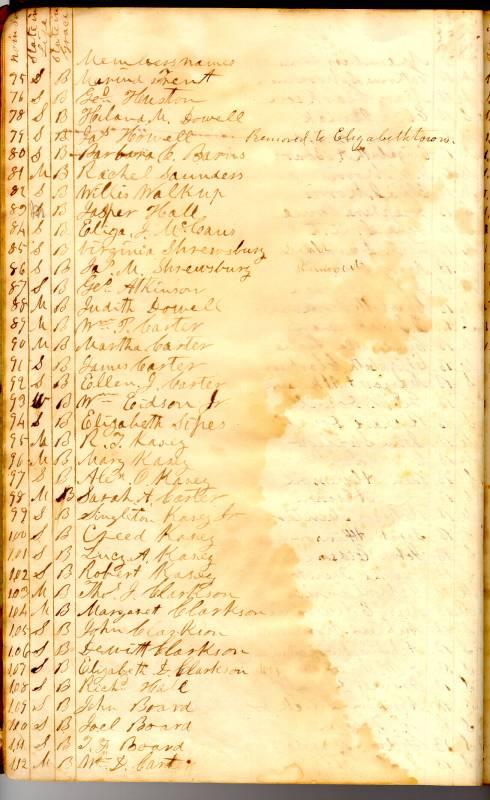 State in
Life
State in
Grace
Members names
75 S B Marine Trent
76 S B Geo. Huston
78 S B Hilana M. Dowell
79 S B Jas Howell Removed to Elizabethtown.
80 S B Barbara E. Barns
81 M B Rachel Saunders
82 S B Willis Walkup
83 M B Jasper Hall
84 S B Eliza J.
85 S B Virginia Shrewsbury
86 S B Jas. M. Shrewsbury Removed
87 S B Geo. Atkinson
88 M B Judith Dowell
89 M B Wm. T. Carter
90 M B Martha Carter
91 S B James Carter
92 S B Ellen J. Carter
93 W B Wm Eidson Jr
94 S B Elizabeth Sipes
95 M B R. T. Kasey
96 M B Mary Kasey
97 S B Alex. O. Kasey
98 M B Sarah A. Carter
99 S B Singleton Kasey Jr
100 S B Creed Kasey
101 S B Lucy A. Kasey
102 S B Robert Kasey
103 M B Tho. J. Clarkson
104 M B Margaret Clarkson
105 S B John Clarkson
106 S B Dewitt Clarkson
107 S B Elizabeth D. Clarkson
108 S B Richd. Hall
109 S B John Board
110 S B Joel Board
111 S B Board
112 M B Wm. D. Cart